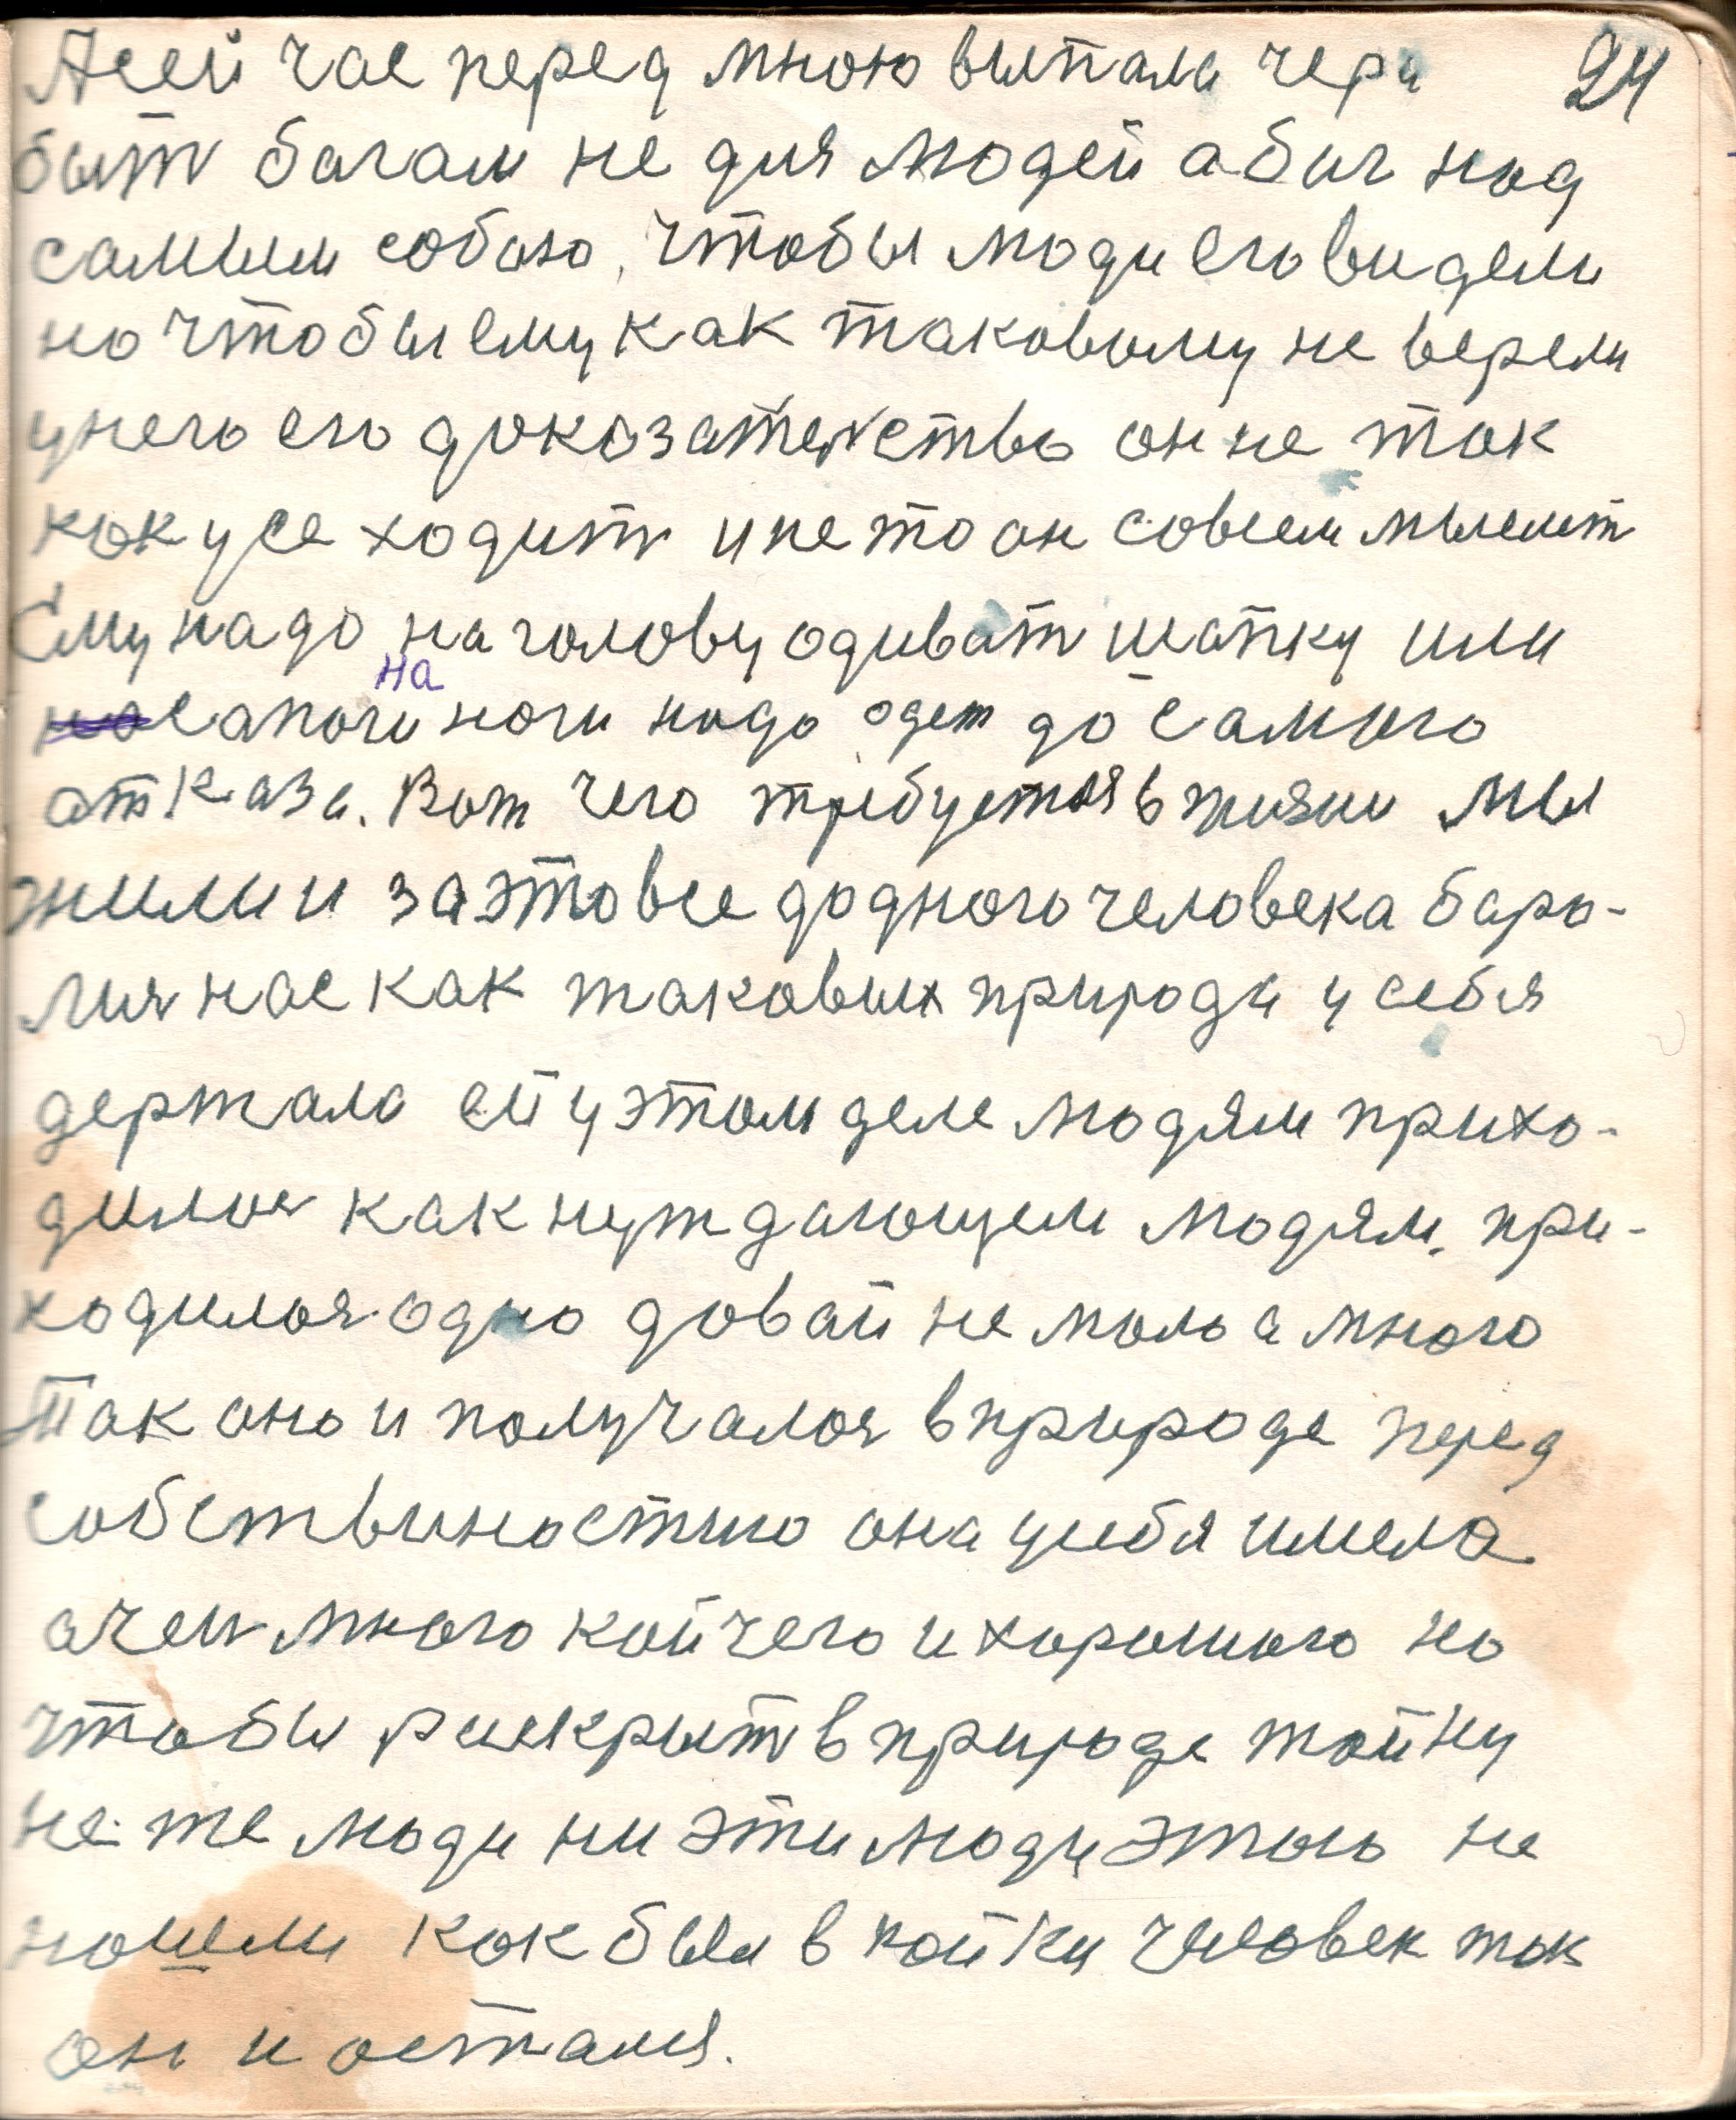 Асей час перед мною выпала чера 24
быт багам не для людей а бич над
самим собою, чтобы люди его видели
но чтобы ему как таковому не верели
унего его доказателства он не так
как усе ходит и не то он совсем мыслит
Ему надо на голову одиват шапку или
сапоги на ноги надо одет до самого
атказа. Вот чего требуется в жизни мы
жили и за это все додного человека баро-
лия нас как таковых природа у себя
держала ей у этом деле людям прихо-
дилося как нуждающем людям. при-
ходилося одно довай не мало а много
Так оно и получалося в природе перед
собствиностию она усебя имела
очен много кой чего и хорошого но
чтобы раскрыт в природе тайну
не те люди ни эти люди этого не
нашли как был в пайки человек так
он и остался.